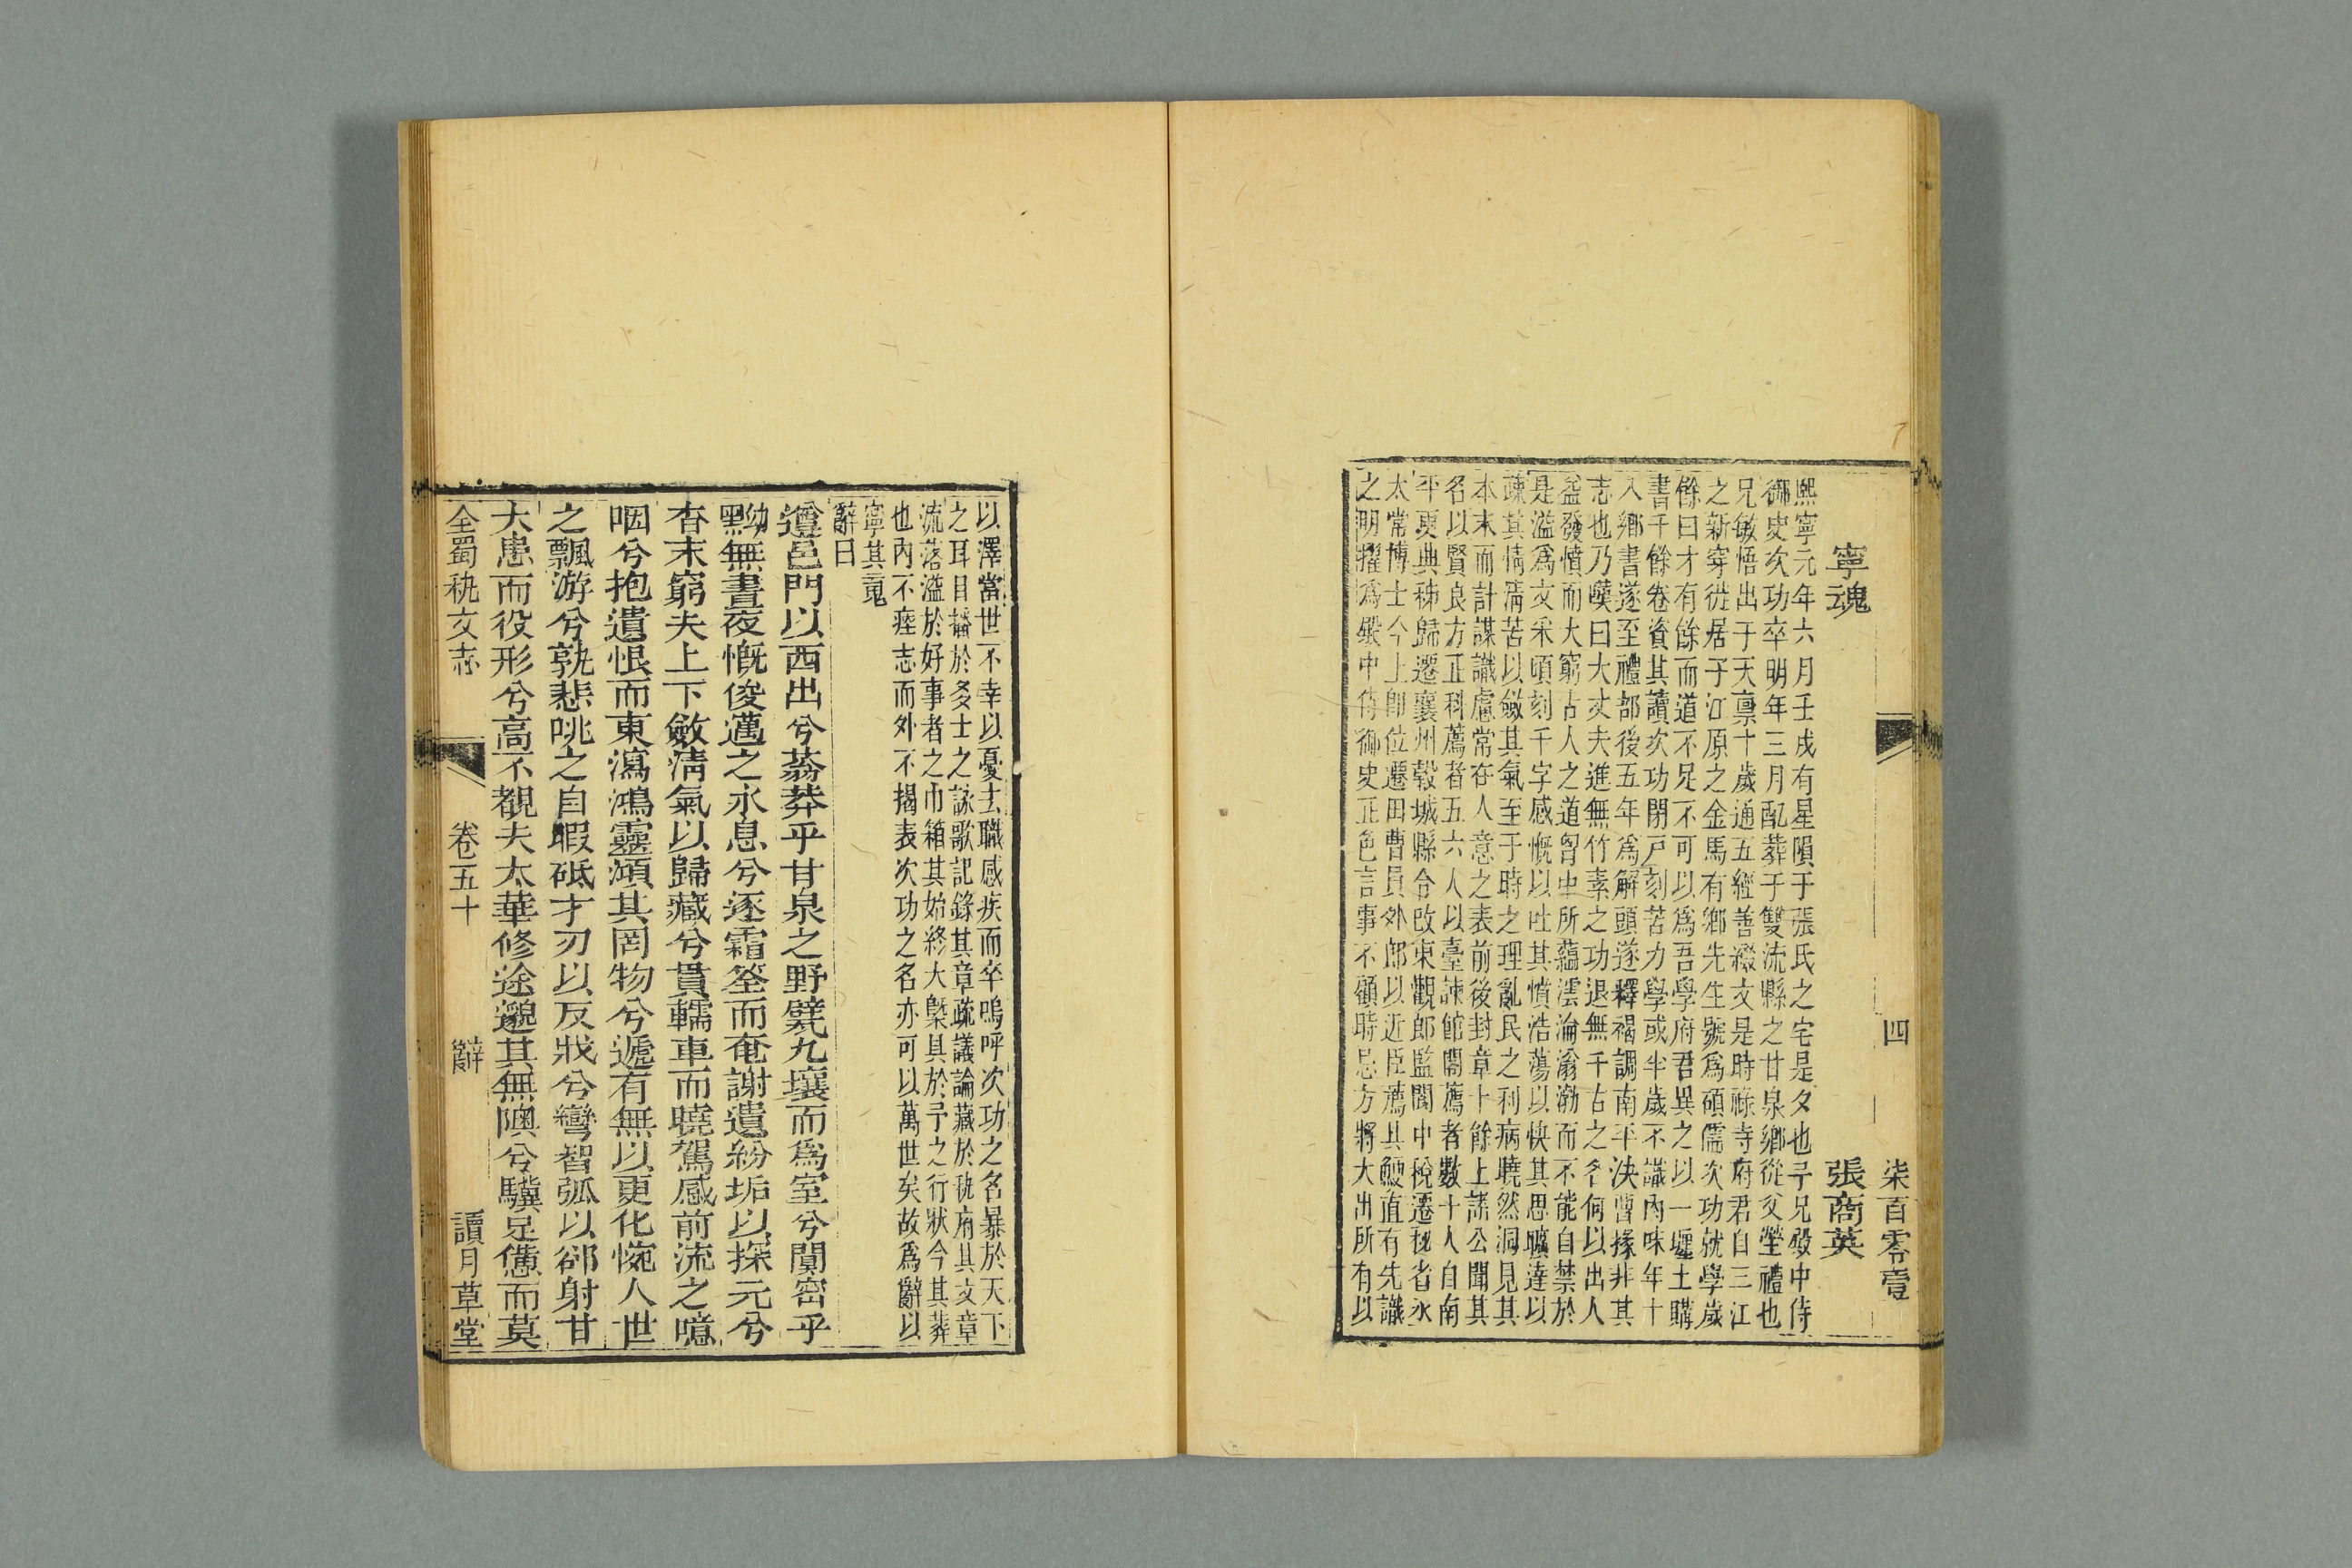 四 柒百零壹
寧魂 張商英
熙寧元年六月壬戌有星隕于張氏之宅是夕也予兄殿中侍
御史次功卒明年三月配葬于雙流縣之甘泉鄉從父塋禮也
兄敏悟出于天稟十歲通五經善綴文是時祿寺府君自三江
之新穿徙居于江原之金馬有鄉先生號為碩儒次功就學歲
餘曰才有餘而道不足不可以為吾學府君異之以一壥土購
書千餘卷資其讀次功閉戶刻苦力學或半歲不識肉味年十
入鄉書遂至禮部後五年為解頭遂釋褐調南平決曹掾非其
志也乃嘆曰大丈夫進無竹素之功退無千古之名何以出人
益發憤而大窮古人之道胷中所蘊澐淪滃渤而不能自禁於
是溢為文采頃刻千字感慨以吐其憤浩蕩以快其思曠達以
疎其情清苦以斂其氣至于時之理亂民之利病曉然洞見其
本末而計謀識慮常在人意之表前後封章十餘上諸公聞其
名以賢良方正科薦者五六人以臺諫館閣薦者數十人自南
平更典秭歸遷襄州穀城縣令改東觀郎監閬中稅遷秘省永
太常博士今上即位遷田曹員外郎以近臣薦其鯁直有先識
之明擢為殿中侍御史正色言事不顧時忌方將大出所有以
以澤當世不幸以憂去職感疾而卒嗚呼次功之名暴於天下
之耳目播於多士之詠歌記錄其章疏議論藏於秇府其文章
流落溢於好事者之巾箱其始終大槩具於予之行狀今其葬
也內不瘞志而外不揭表次功之名亦可以萬世矣故為辭以
寧其䰟
辭曰
遵邑門以西出兮蓊莽乎甘泉之野甓九壤而為室兮闃窅乎
黝無晝夜慨俊邁之永息兮逐霜筌而奄謝遺紛垢以探元兮
杳末窮夫上下斂清氣以歸藏兮貫轜車而曉駕感前流之噫
咽兮抱遺恨而東瀉鴻靈澒其罔物兮遞有無以更化惋人世
之飄游兮孰悲咷之自暇砥才刃以反戕兮彎智弧以郤射甘
大患而役形兮高不覩夫太華修途邈其無隩兮驥足憊而莫
全蜀秇文志 卷五十 辭 讀月草堂